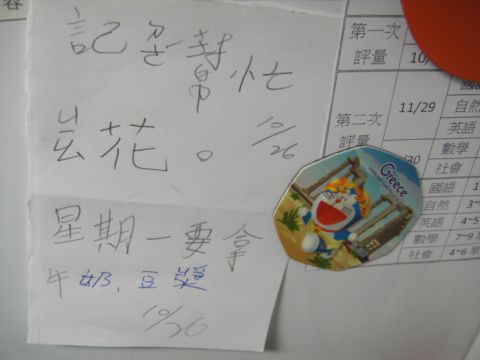 容
記
幫忙
花。
10/26
星期一要拿
牛奶、豆漿
10/26
Greece
第一次
評量
10/
第二次
評量
11/29
/30
國語
自然
英語
數學
社會
國語
自然
英語
數學
社會
1
3~
4~5
7~9
4~6 單